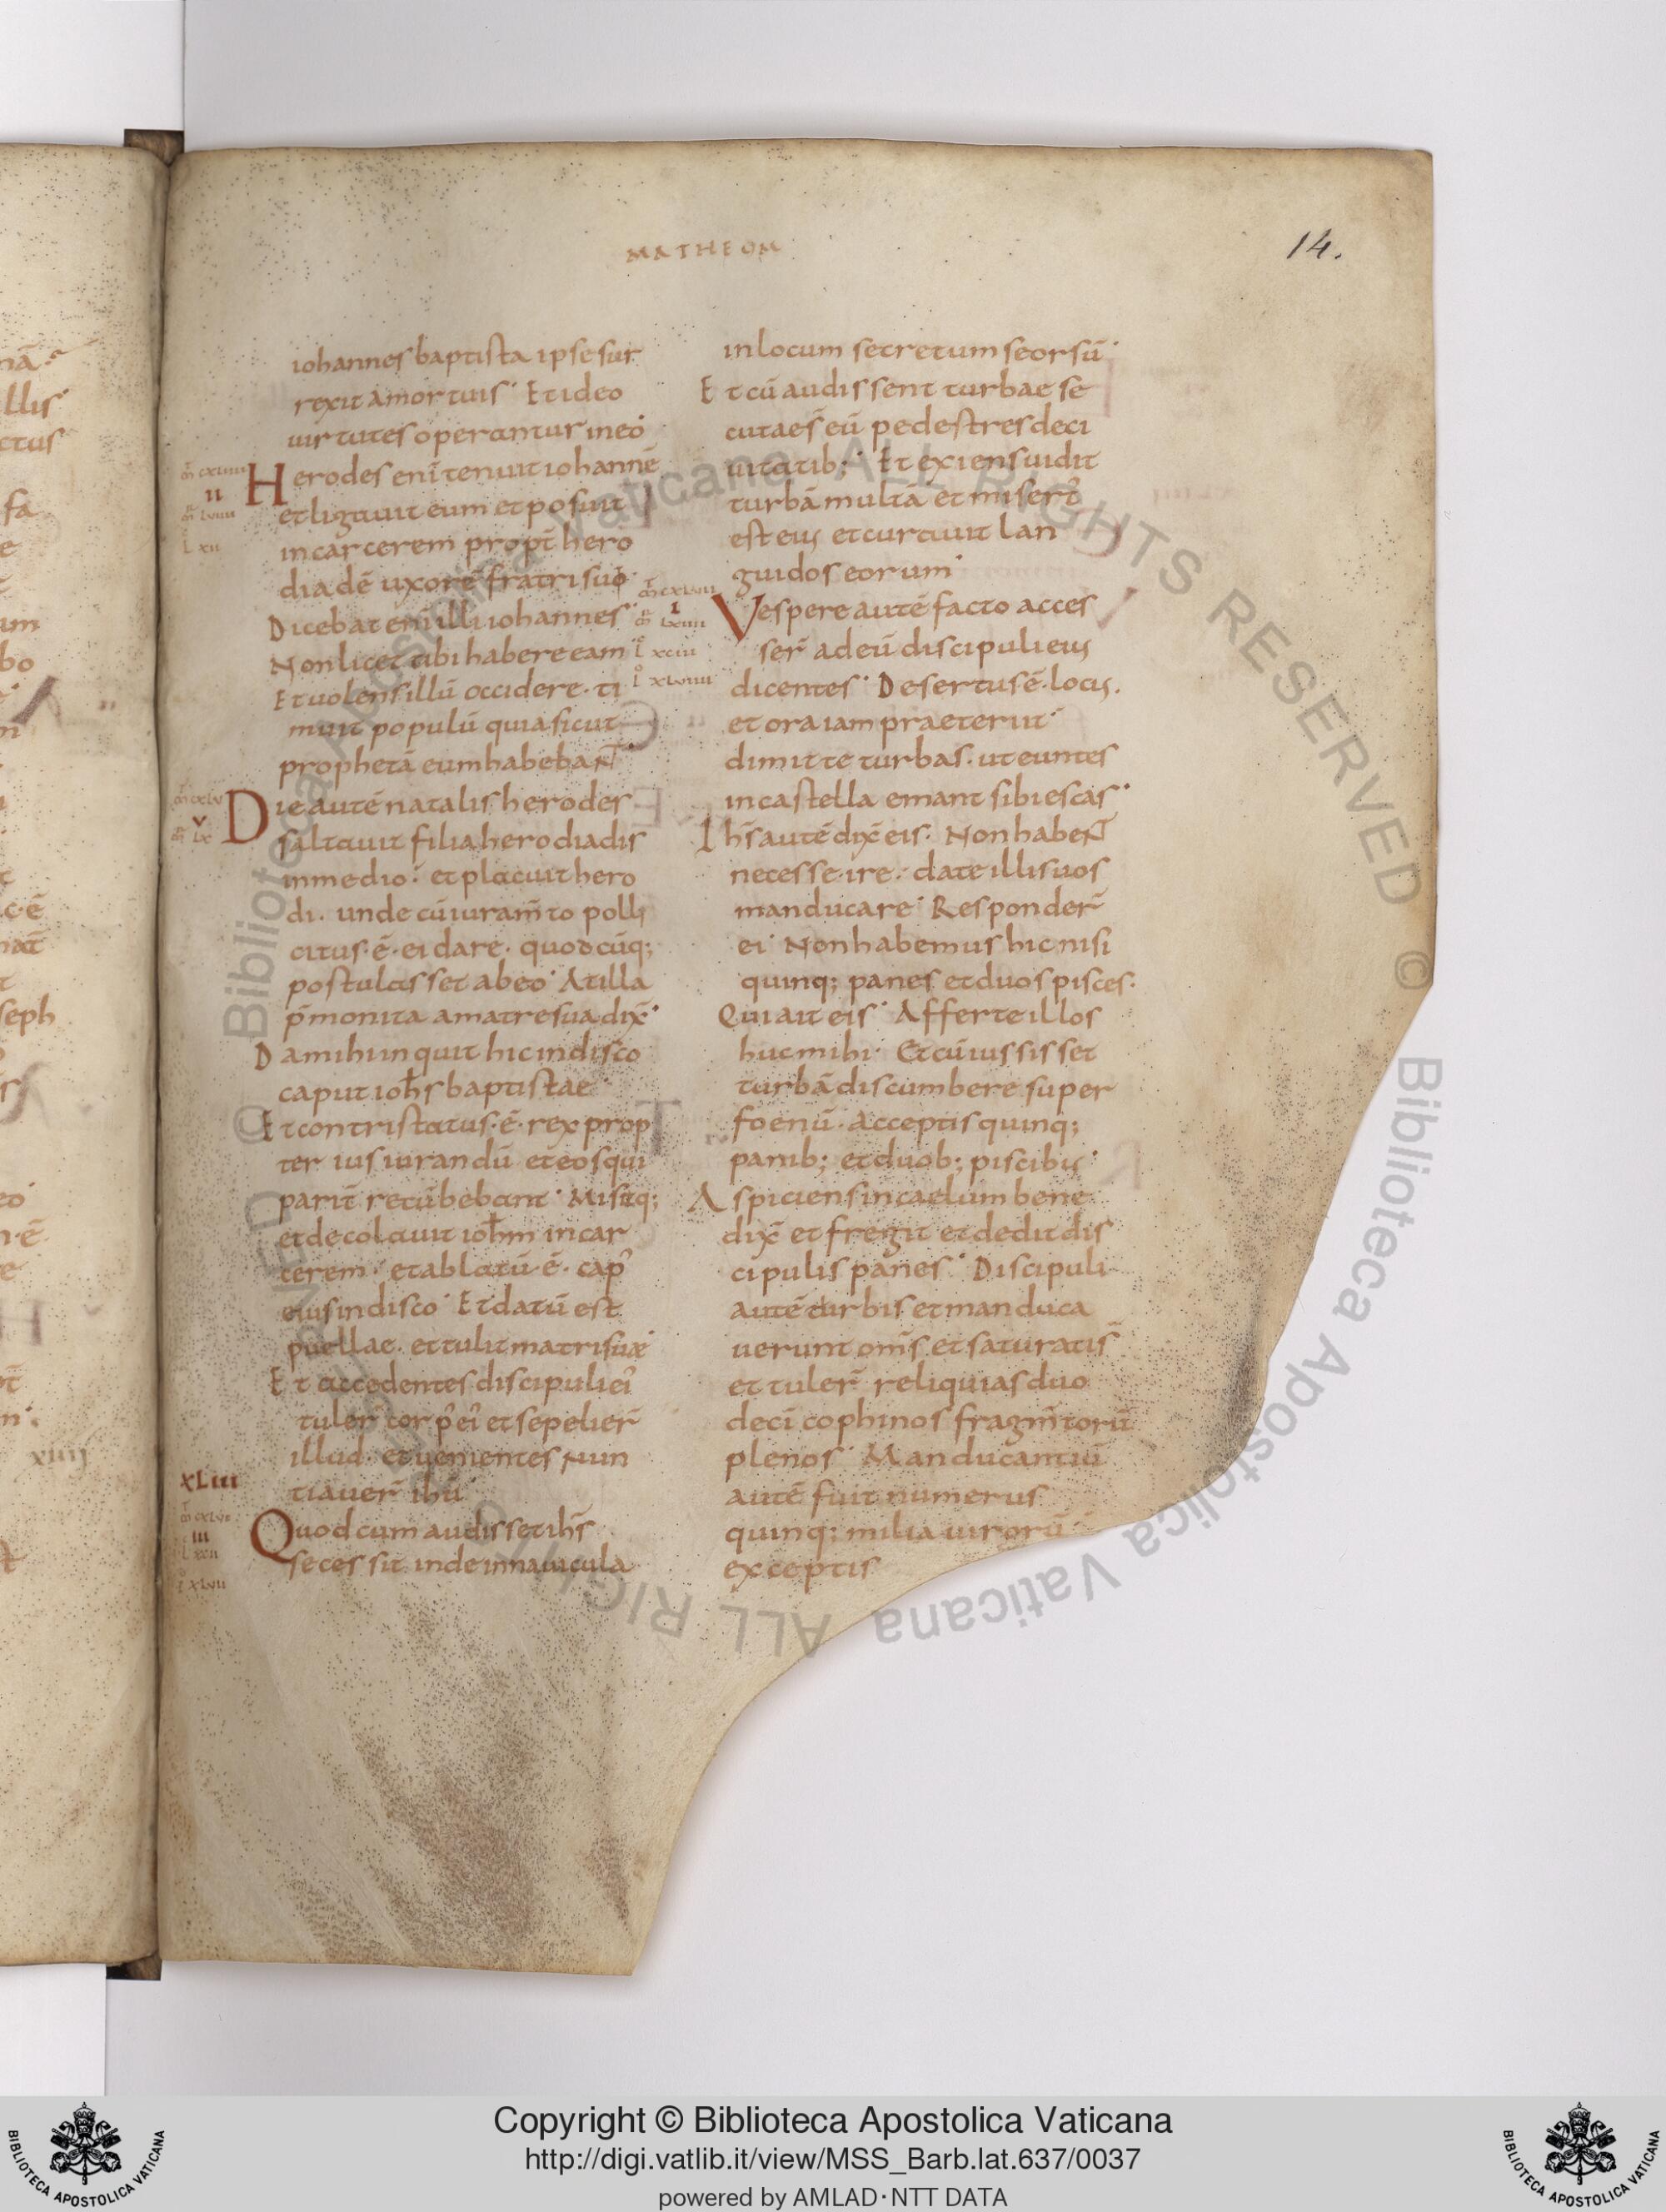 MATHEOM
14.
iohannes baptista ipse sur
rexit amortuis· Et ideo
uirtutes operantur in eo·
Herodes eni̅ tenuit iohanne̅
et ligauit eum et posuit
in carcerem propt̅ hero
diade̅ uxore̅ fratri suo·
Dicebat eni̅ illi iohannes·
Non licet tibi habere eam
Et uolens illu̅ occidere· ti
muit populu̅ quia sicut
propheta̅ eum habebant·
Die aute̅ natalis herodes
saltauit filia herodiadis
in medio· et placuit hero
di· unde cu̅ iuram̅to polli
citus·e̅· ei dare· quodcu̅q;
postulasset ab eo· At illa
p̅monita a matre sua dix̅·
Da mihi inquit hic in disco
caput ioh̅s baptistae
Et contristatus·e̅· rex prop
ter ius iurandu̅ et eos qui
parit̅ recu̅bebant· Misitq;
et decolauit ioh̅m in car
cerem· et ablatu̅·e̅· cap᾽
eius in disco· Et datu̅ est
puellae· et tulit matri suae·
Et accedentes discipuli ei᾽
tuler̅ corp᾽ ei᾽ et sepelier̅
illud· et uenientes nun
tiauer̅ ihu̅·
XLIII
Quod cum audisset ih̅s
secessit inde in nauicula
in locum secretum seorsu̅·
Et cu̅ audissent turbae se
cutae s̅ eu̅ pedestres deci
uitatib;· Et exiens uidit
turba̅ multa̅ et misert᾽
est eius et curauit lan
guidos eorum·
Vespere aute̅ facto acces
ser̅ ad eu̅ discipuli eius
dicentes· Desertus e̅· locus·
et ora iam praeteriit·
dimitte turbas· ut euntes
in castella emant sibi escas·
Ih̅s aute̅ dix̅ eis· Non habent
necesse· ire· date illis uos
manducare· Responder̅
ei· Non habemus hic nisi
quinq; panes et duos pisces·
Qui ait eis· Afferte illos
huc mihi· Et cu̅ iussisset
turba̅ discumbere super
foenu̅· acceptis quinq;
panib; et duob; piscibus·
Aspiciens in caelum bene
dix̅ et fregit et dedit dis
cipulis panes· Discipuli
aute̅ turbis et manduca
uerunt om̅s et saturatis̅
et tuler̅ reliquias duo
deci̅ cophinos fragm̅toru̅
plenos· Manducantiu̅
aute̅ fuit numerus
quinq; milia uiroru̅
exceptis
Copyright © Biblioteca Apostolica Vaticana
http://digi.vatlib.it/view/MSS_Barb.lat.637/0037
powered by AMLAD·NTT DATA